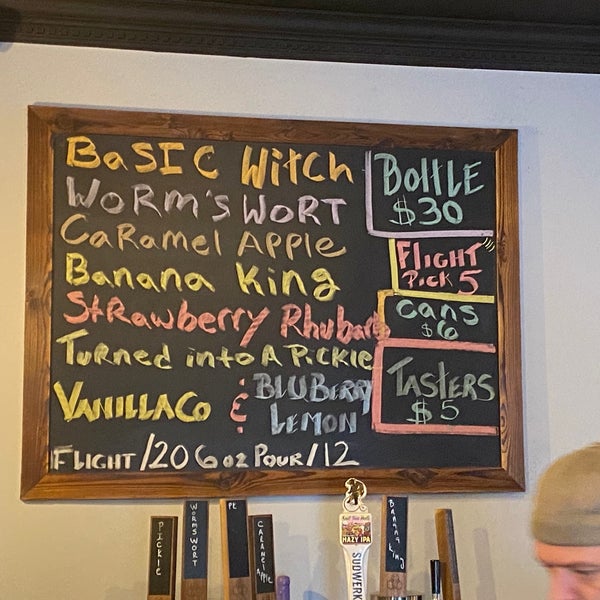 BaSIC Witch
WORM'S WORT
CaRamel APPle
Banana King
StRawberry Rhubarb
Turned into A PiCKle
VANILLACo & BLUBERRY LEMON
FLIGHT/20 6oz POUR/12
BOttLE
$30
FLIGHT
PiCK 5
CANS
$6
TASTERS
$5
PICKLE
WORMSWORT
CARAMEL APPLE
HAZY IPA
SUDWERK
BANANA King